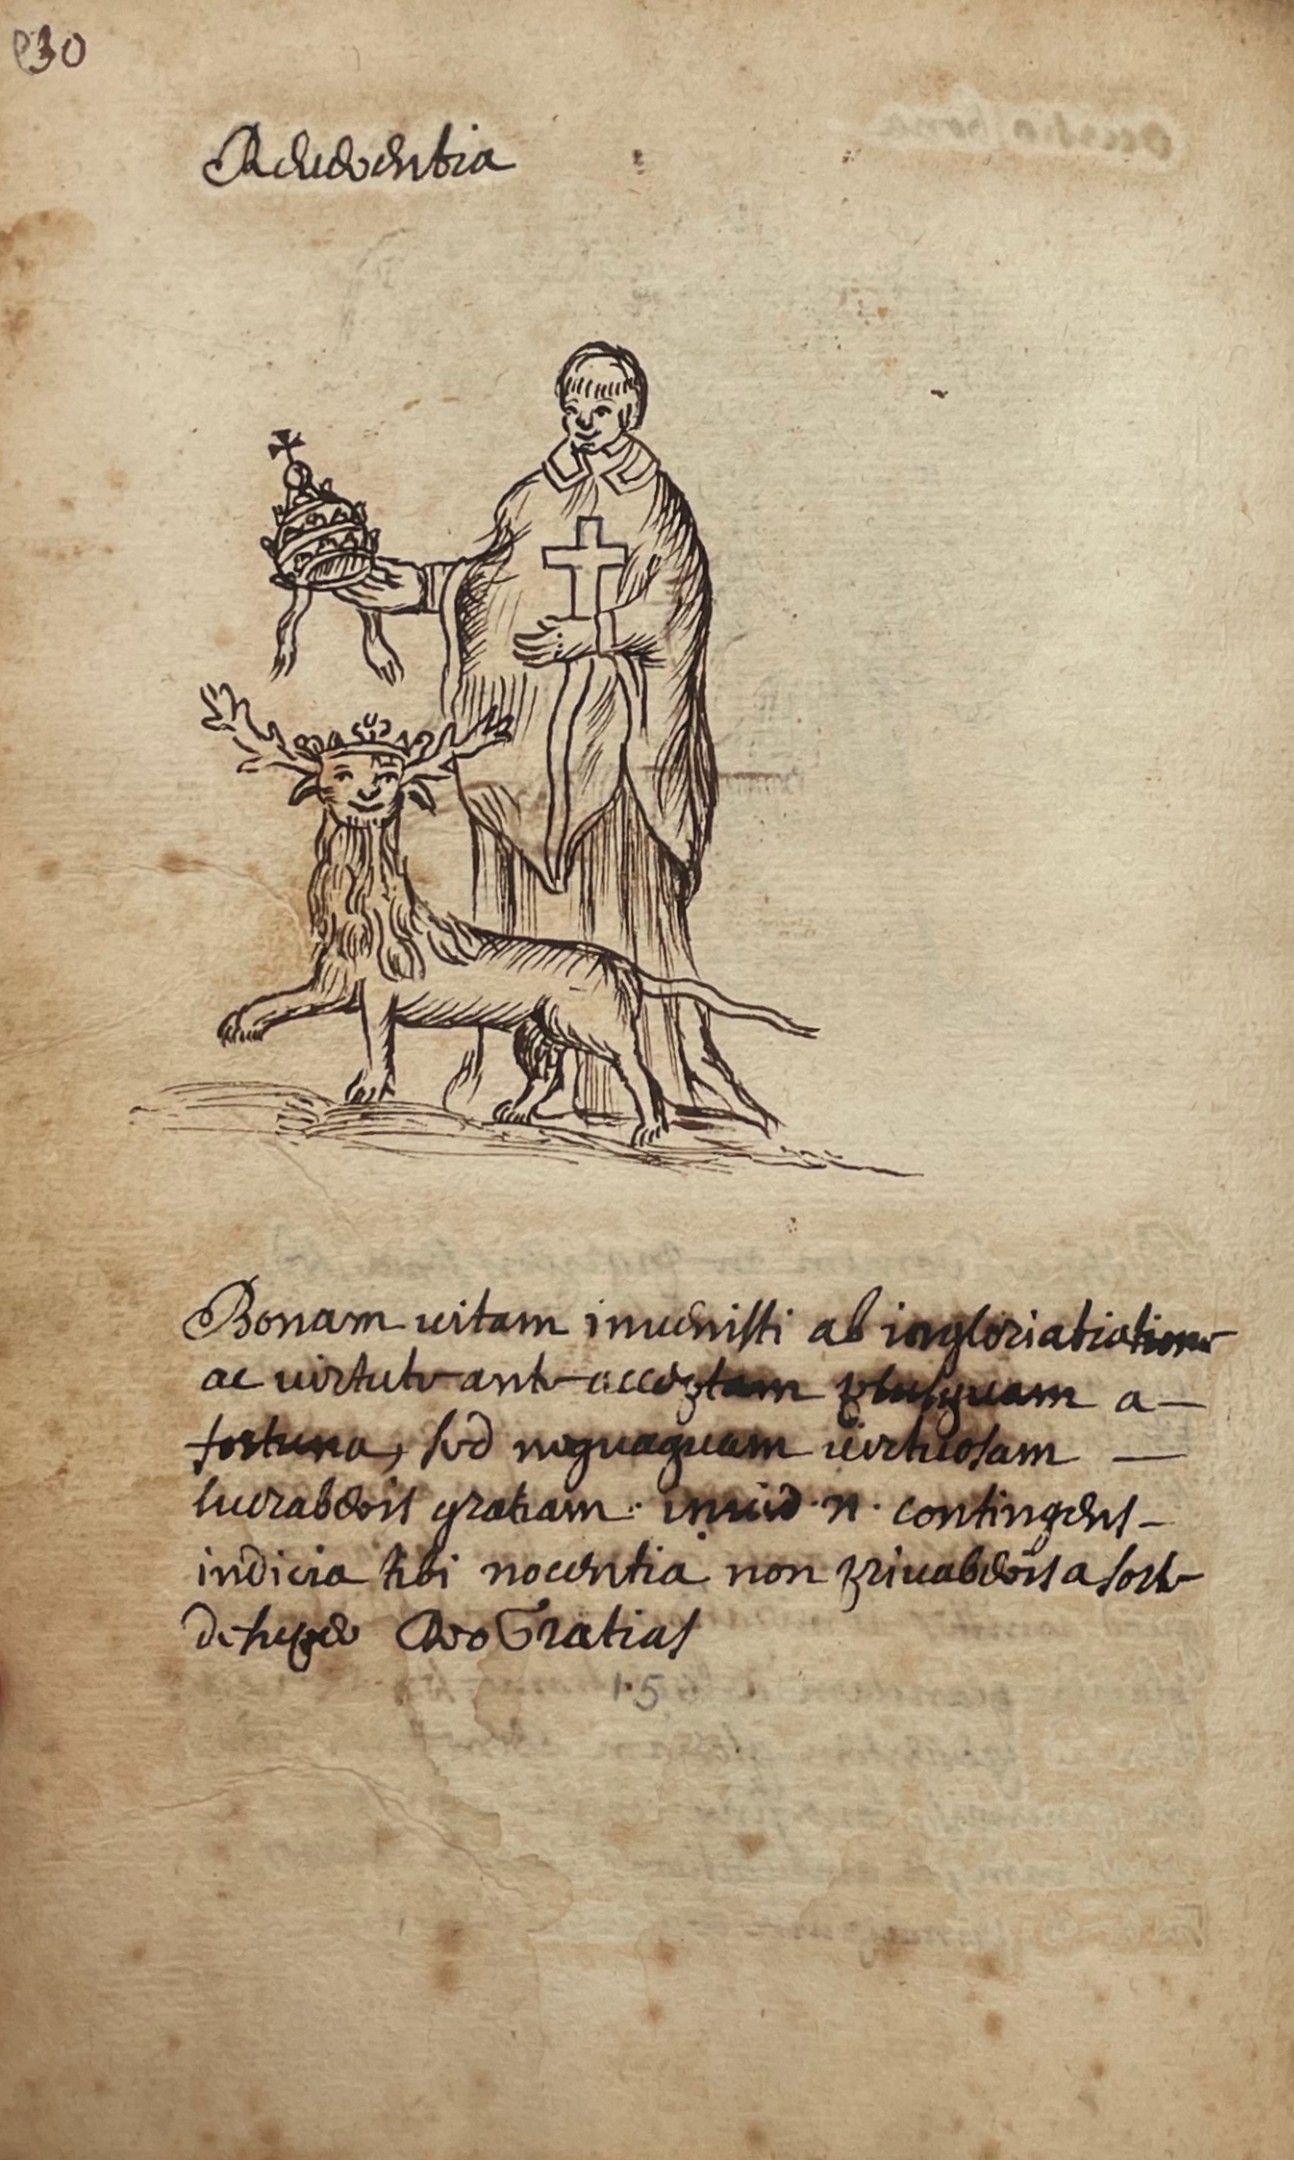 30
Reuerentia
Bonam uitam inuenisti ab ingloriatione
ac uirtute ante acceptam plusquam a
fortuna, sed nequaquam uirtuosam
lucraberis gratiam. inuid. n. contingens
indicia tibi nocentia non priuaberis a sorte
Deo Gratias
15